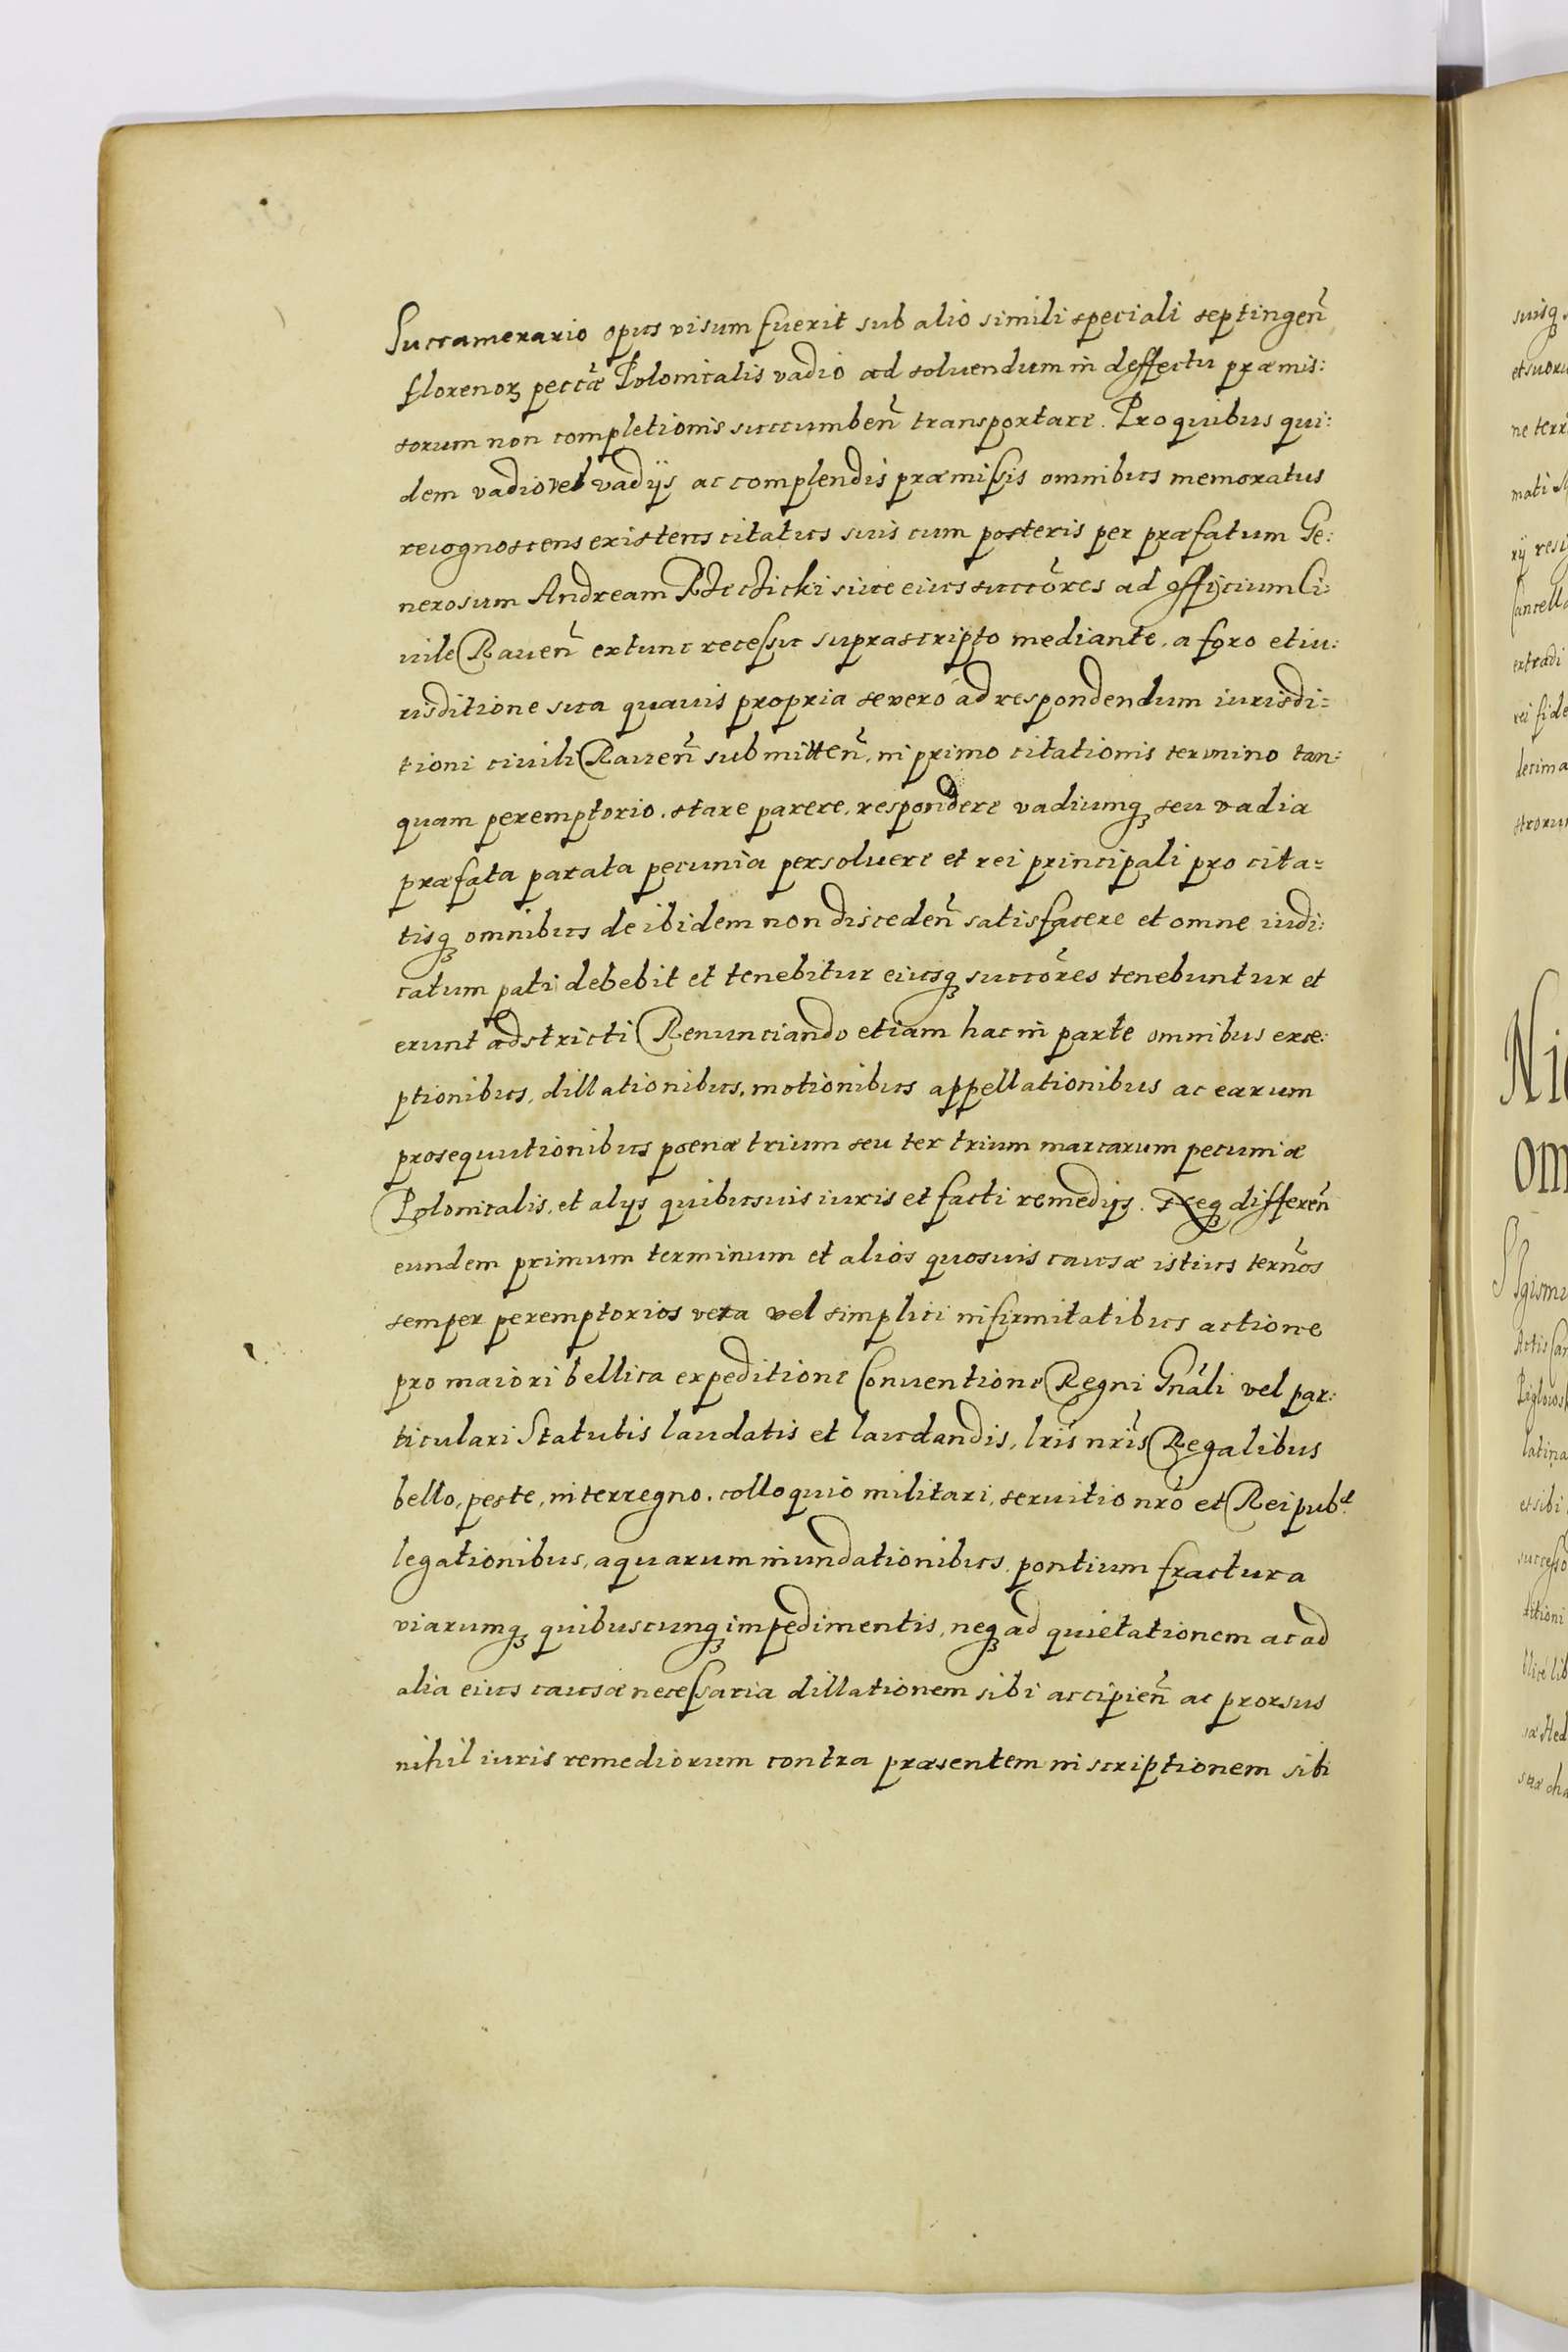 Succamerario opus visum fuerit sub alio simili speciali septingen̄
florenoꝝ pecc̄æ Polonicalis vadio ad soluendum in deffectu præmis:
sorum non completionis succumben̄ transportare. Pro quibus qui:
dem vadio vel vadijs ac complendis præmißis omnibus memoratus
recognoscens existens citatus suis cum posteris per præfatum Ge:
nerosum Andream Rzeczicki siue eius succōres ad officium Ci:
uile Rauen̄ extunc recessu suprascripto mediante, a foro et iu:
risditione sua quauis propria se vero ad respondendum iurisdi=
tioni ciuili Rauen̄ submitten̄, in primo citationis termino tan:
quam peremptorio, stare parere, respondere vadiumqꝫ seu vadia
præfata parata pecunia persoluere et rei principali pro cita=
tisqꝫ omnibus de ibidem non disceden̄ satisfacere et omne iudi:
catum pati debebit et tenebitur eiusqꝫ succōres tenebuntur et
erunt adstricti Renunciando etiam hac in parte omnibus exce:
ptionibus, dillationibus, motionibus appellationibus ac earum
prosequutionibus poenæ trium seu ter trium marcarum pecuniæ
Polonicalis, et alijs quibusuis iuris et facti remedijs. Neqꝫ differen̄
eundem primum terminum et alios quosuis causæ istius tern̄os
semper peremptorios vera vel simplici infirmitatibus actione
pro maiori bellica expeditione Conuentione Regni Gn̄ali vel par:
ticulari Statutis laudatis et laudandis, lr̄is nr̄is Regalibus
bello, peste, interregno, colloquio militari, seruitio nr̄o et Reipub:
legationibus, aquarum inundationibus, pontium fractura
viarumqꝫ quibuscunqꝫ impedimentis, neqꝫ ad quietationem ac ad
alia eius causæ necessaria dillationem sibi accipien̄ ac prorsus
nihil iuris remediorum contra præsentem inscriptionem sibi